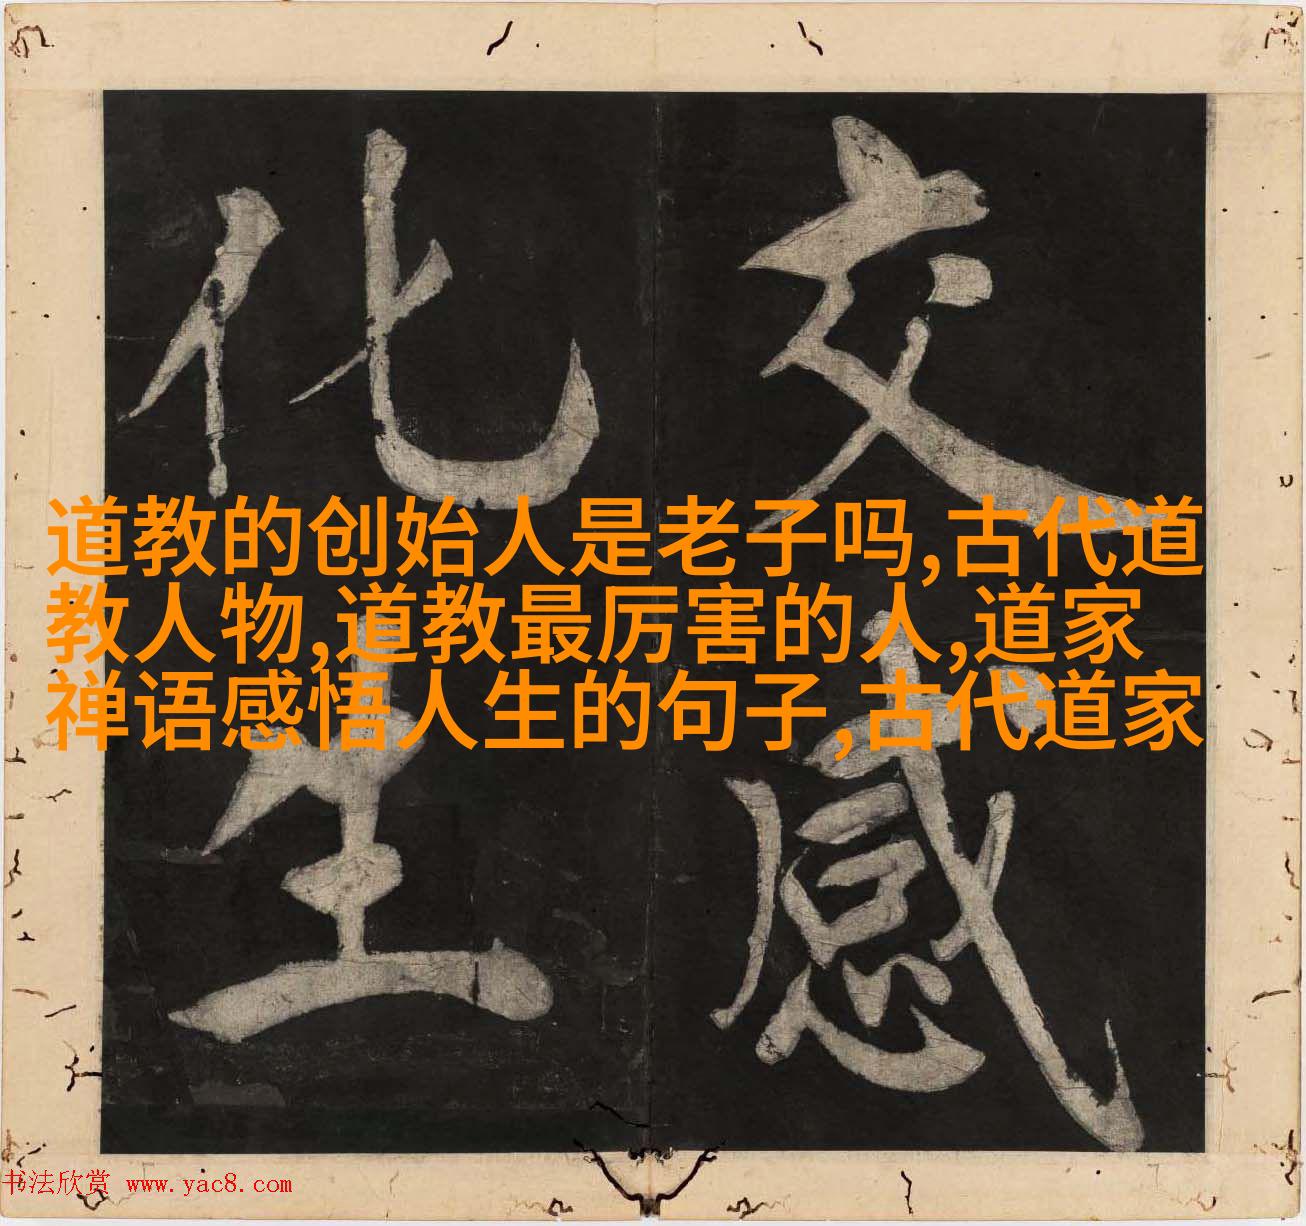 交感
化生
道教的创始人是老子吗,古代道
教人物,道教最厉害的人,道家
禅语感悟人生的句子,古代道家
书法欣赏 www.yac8.com